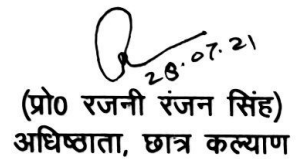 28.07.21
(प्रो0 रजनी रंजन सिंह)
अधिष्ठाता, छात्र कल्याण